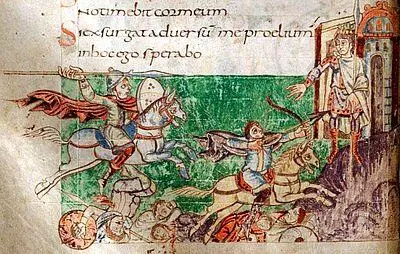 Non timebit cor meum
Si exsurgat adversum me proelium
in hoc ego sperabo